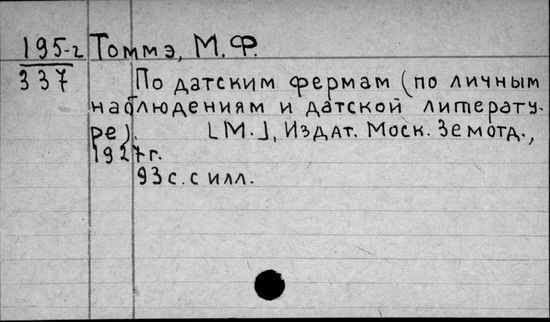 195-г Томмэ, М.Ф.
337 По датским фермам (по личным
наблюдениям и датской литерату-
ре). [М.], Издат. Моск. Земотд.,
1927г.
93с. с илл.